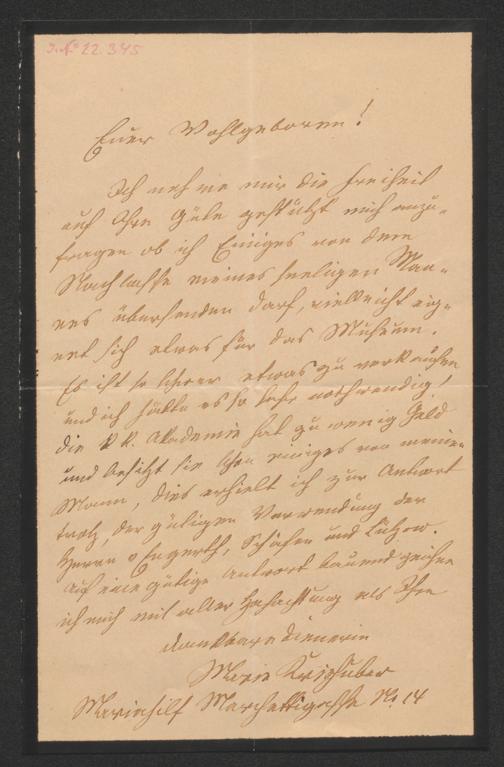 J. N° 22.345
Euer Wohlgeboren!
Ich nehme mir die Freiheit
auf Ihre Güte gestützt mich anzu-
fragen ob ich Einiges von dem
Nachlasse meines seeligen Man-
nes übersenden darf, vielleicht eig-
net sich etwas für das Museum.
Es ist so schwer etwas zu verkaufen
und ich hätte es so sehr nothwendig!
die k k. Akademie hat zu wenig Geld
und besitzt sie schon einiges von meinem
Mann, dies erhielt ich zur Antwort
trotz, der gütigen Verwendung der
Herren v Engerth, Schäfer und Lützow.
Auf eine gütige Antwort bauend zeichne
ich mich mit aller Hochachtung als Ihre
dankbare Dienerin
Marie Kriehuber
Mariahilf Marchettigasse N: 14